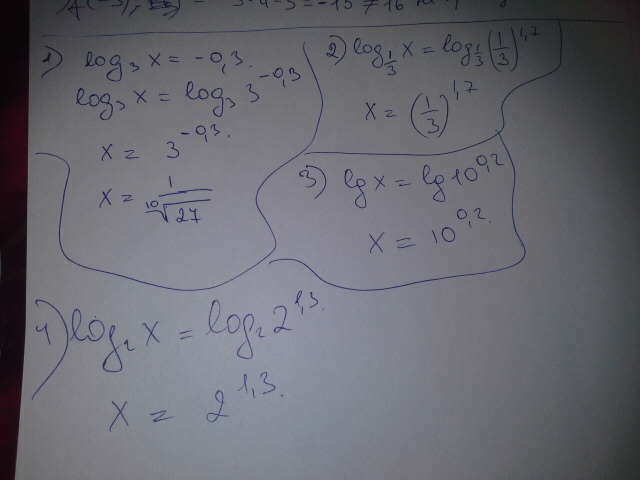 A(-3);
-3·4-3=-15≠16
1) log₃ x = -0,3.
log₃ x = log₃ 3^-0,3
x = 3^-0,3.
x = 1/¹⁰√27
2) log_1/3 x = log_1/3 (1/3)^1,7
x = (1/3)^1,7
3) lg x = lg 10^0,2
x = 10^0,2.
4) log₂ x = log₂ 2^1,3.
x = 2^1,3.